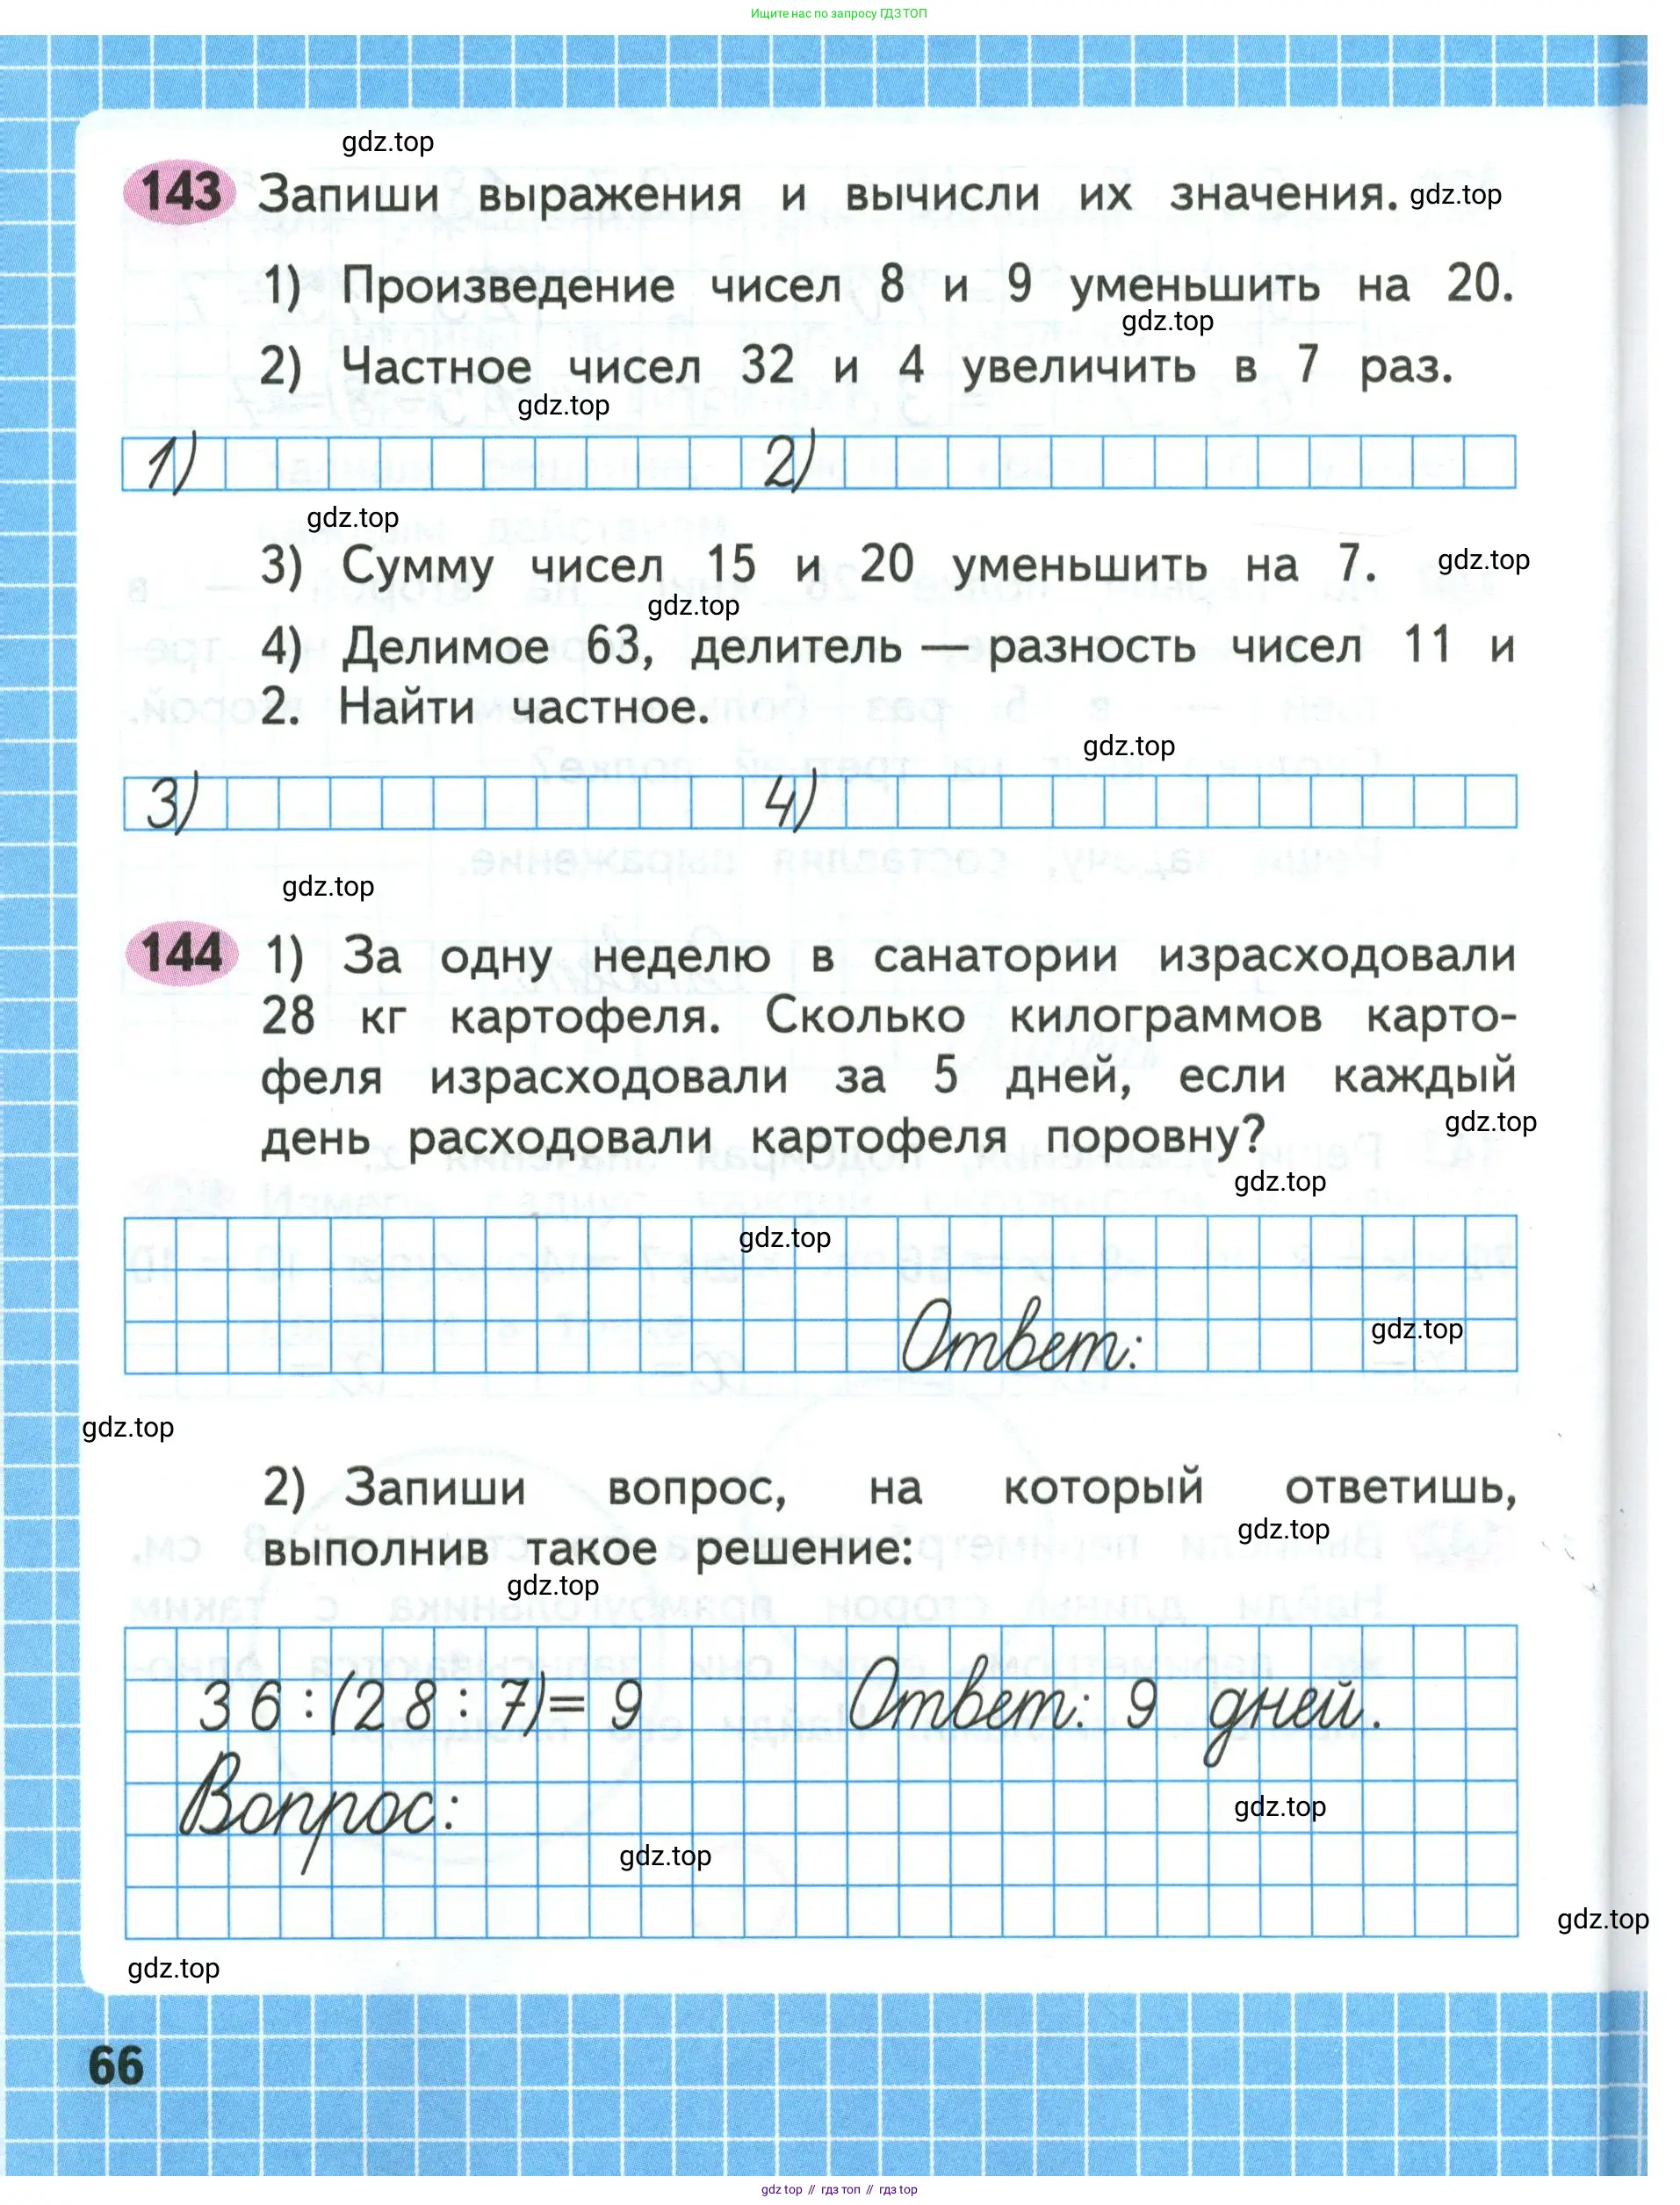 Ищите нас по запросу ГДЗ ТОП
gdz.top
143 Запиши выражения и вычисли их значения. gdz.top
1) Произведение чисел 8 и 9 уменьшить на 20.
gdz.top
2) Частное чисел 32 и 4 увеличить в 7 раз.
gdz.top
1) 2)
gdz.top
3) Сумму чисел 15 и 20 уменьшить на 7. gdz.top
gdz.top
4) Делимое 63, делитель — разность чисел 11 и
2. Найти частное.
gdz.top
3) 4)
gdz.top
144 1) За одну неделю в санатории израсходовали
28 кг картофеля. Сколько килограммов карто-
феля израсходовали за 5 дней, если каждый
день расходовали картофеля поровну?
gdz.top
gdz.top
gdz.top
Ответ: gdz.top
gdz.top
2) Запиши вопрос, на который ответишь,
выполнив такое решение: gdz.top
gdz.top
36:(28:7)=9 Ответ: 9 дней.
Вопрос: gdz.top
gdz.top
gdz.top
gdz.top
66
gdz.top // гдз топ // гдз top